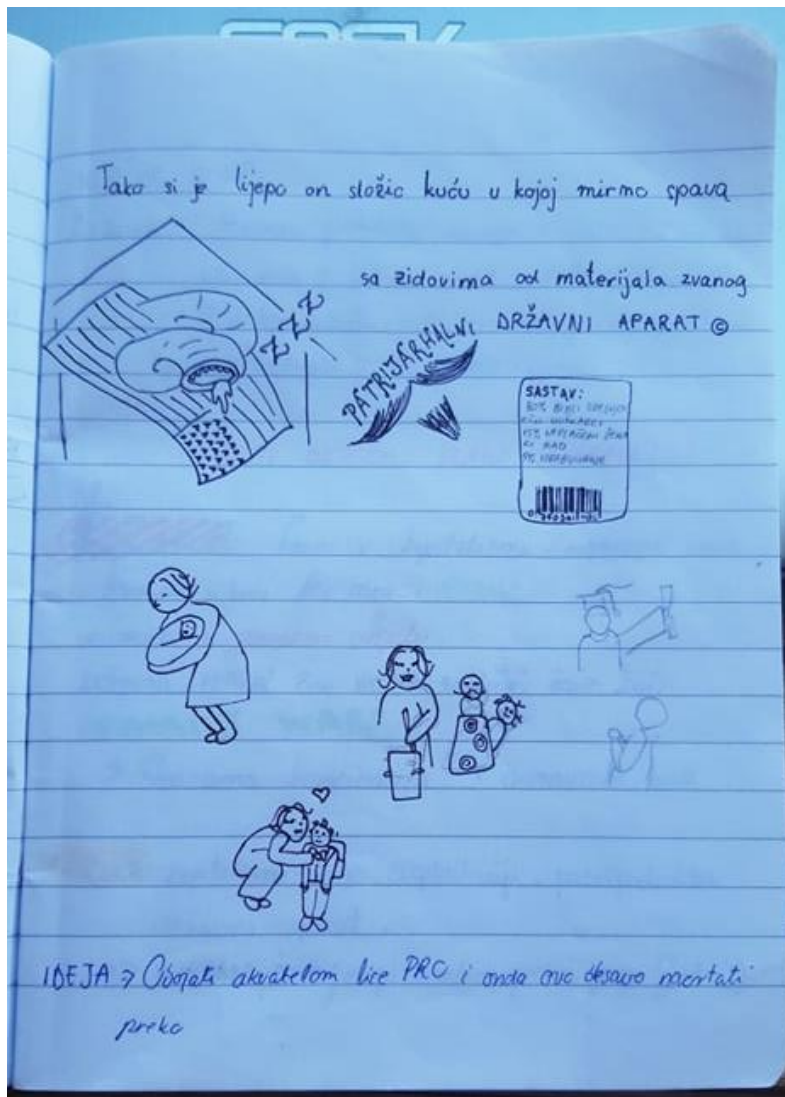 Tako si je lijepo on složio kuću u kojoj mirno spava
sa zidovima od materijala zvanog
PATRIJARHALNI DRŽAVNI APARAT ©
ZZZ
SASTAV:
IDEJA → akvatelom lice PRC i onda ovo nacrtati
preko